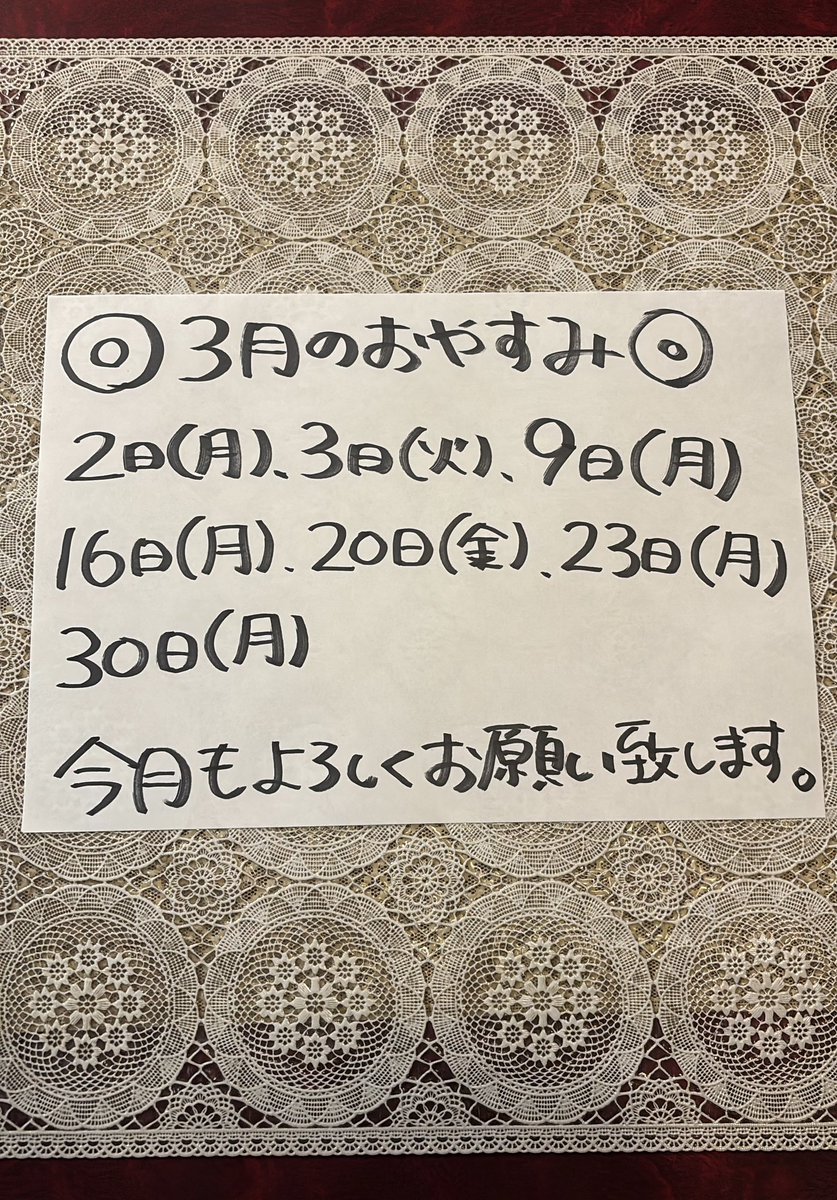 ◎3月のおやすみ◎
2日(月)、3日(火)、9日(月)
16日(月)、20日(金)、23日(月)
30日(月)
今月もよろしくお願い致します。